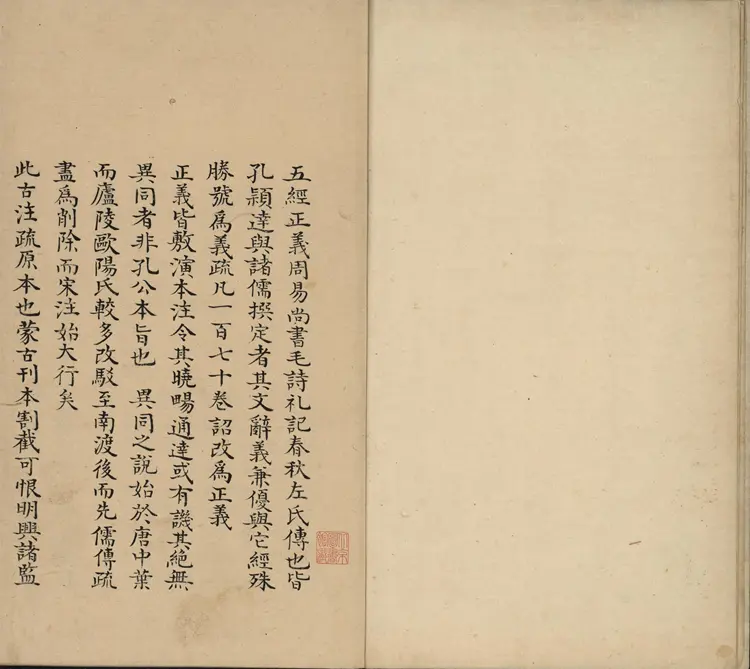 五經正義周易尚書毛詩礼記春秋左氏傳也皆
孔穎達與諸儒撰定者其文辭義兼優與它經殊
勝號爲義疏凡一百七十卷詔改爲正義
正義皆敷演本注令其曉暢通達或有譏其絕無
異同者非孔公本旨也 異同之說始於唐中葉
而廬陵歐陽氏較多改駁至南渡後而先儒傳疏
盡爲削除而宋注始大行矣
此古注疏原本也蒙古刊本割截可恨明興諸監